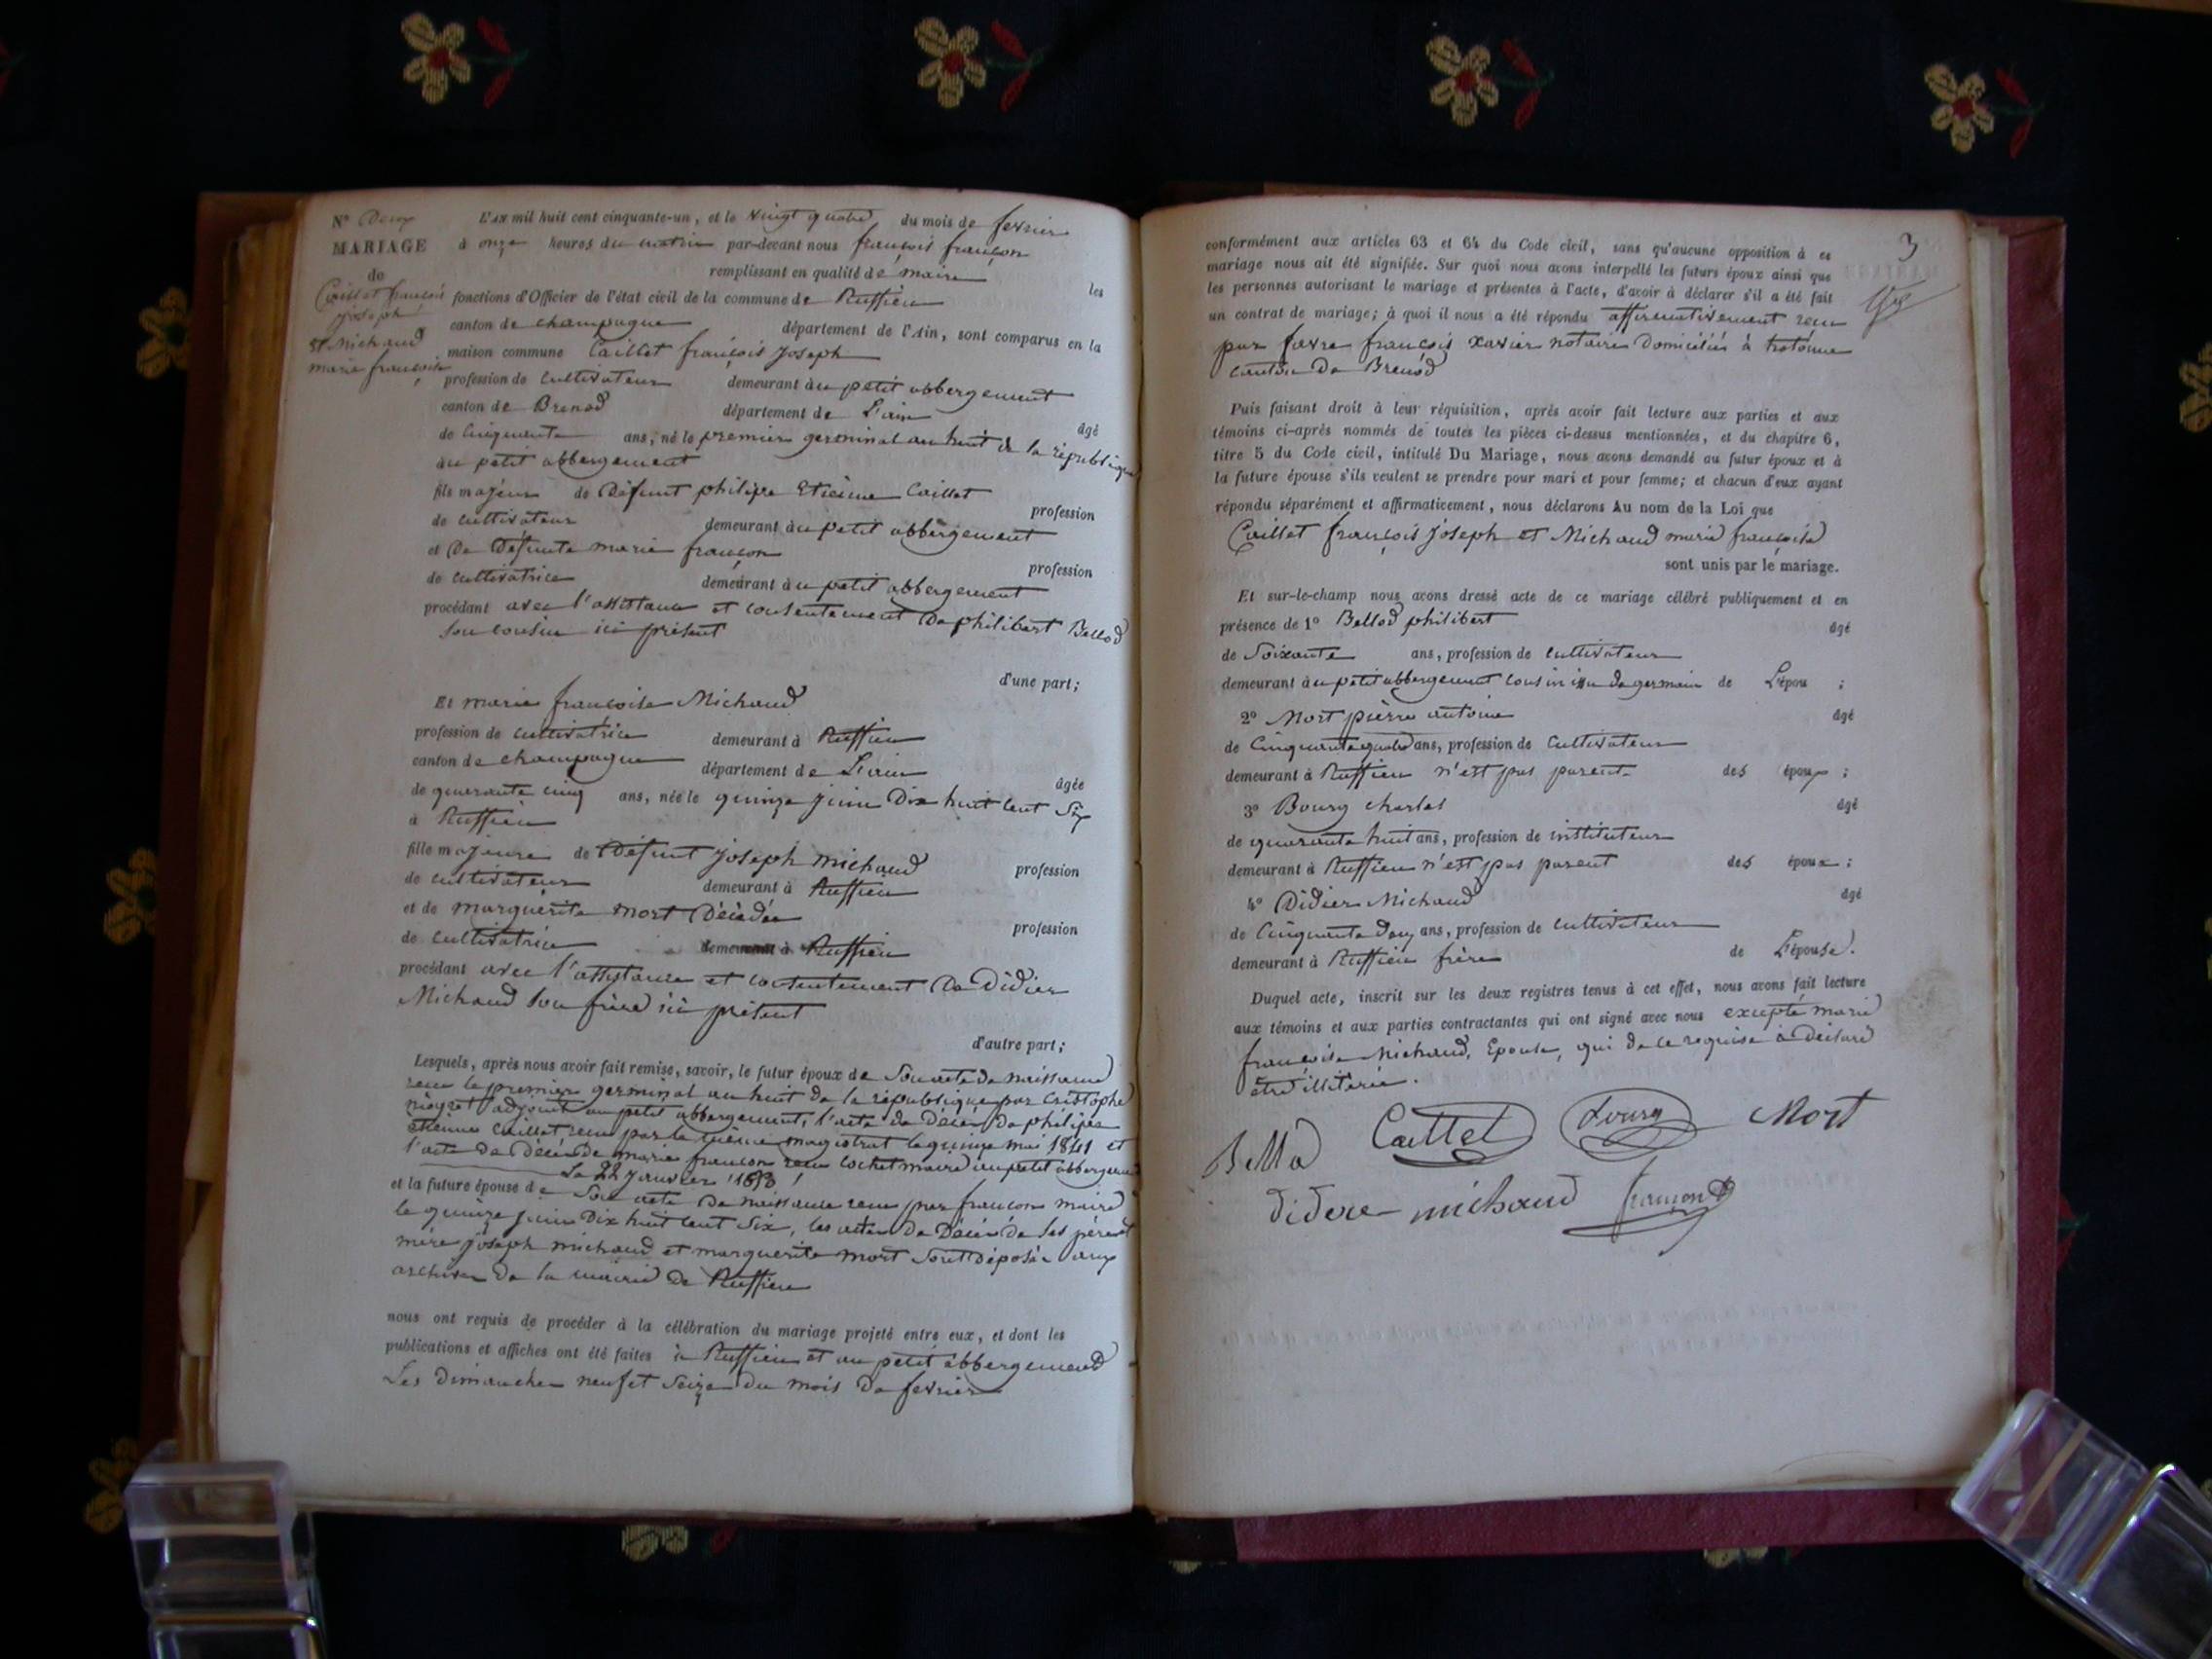 N° Deux
MARIAGE
de
Caillat françois
joseph
et Michaud
marie françoise
L'AN mil huit cent cinquante-un, et le vingt quatre du mois de fevrier
à onze heures du matin par-devant nous françois françon
remplissant en qualité de maire les
fonctions d'Officier de l'état civil de la commune de Ruffieu
canton de champagne département de l'Ain, sont comparus en la
maison commune Caillat françois Joseph
profession de cultivateur demeurant au petit abbergement
canton de Brenod département de L'ain âgé
de cinquante ans, né le premier germinal an huit de la république
au petit abbergement
fils majeur de Défunt philipe Etienne Caillat profession
de cultivateur demeurant au petit abbergement
et De Défunte marie françon profession
de cultivatrice demeurant au petit abbergement
procédant avec l'assistance et consentement De philibert Bellod
son cousin ici présent
d'une part;
Et marie françoise Michaud
profession de cultivatrice demeurant à Ruffieu
canton de champagne département de L'ain âgée
de quarante cinq ans, née le quinze juin Dix huit cent Six
à Ruffieu
fille majeure de Défunt Joseph michaud profession
de cultivateur demeurant à Ruffieu
et de marguerite mort Décédée profession
de cultivatrice demeurant à Ruffieu
procédant avec l'assystance et contentement De Didier
Michaud son frère ici présent
d'autre part;
Lesquels, après nous avoir fait remise, savoir, le futur époux de Son acte de naissance
recu le premier germinal an huit de la république par Cristophe
adjoint au petit abbergement, l'acte de Décès De philipe
etienne Caillat, recu par le même magistrat le quinze mai 1841 et
l'acte de Décès de marie francon recu cochet maire au petit abbergement
Le 22 janvier
et la future épouse de Son acte De naissance recu par francon maire
le quinze juin Dix huit cent Six, les actes De Décès de ses père et
mère joseph michaud et marguerite mort Sont déposés aux
archives De la mairie De Ruffieu
nous ont requis de procéder à la célébration du mariage projeté entre eux, et dont les
publications et affiches ont été faites à Ruffieu et au petit abbergement
Les dimanches neuf et Seize du mois De fevrier
3
conformément aux articles 63 et 64 du Code civil, sans qu'aucune opposition à ce
mariage nous ait été signifiée. Sur quoi nous avons interpellé les futurs époux ainsi que
les personnes autorisant le mariage et présentes à l'acte, d'avoir à déclarer s'il a été fait
un contrat de mariage; à quoi il nous a été répondu affirmativement recu
par favre françois xavier notaire Domicilié à hotonne
canton De Brenod
Puis faisant droit à leur réquisition, après avoir fait lecture aux parties et aux
témoins ci-après nommés de toutes les pièces ci-dessus mentionnées, et du chapitre 6,
titre 5 du Code civil, intitulé Du Mariage, nous avons demandé au futur époux et à
la future épouse s'ils veulent se prendre pour mari et pour femme; et chacun d'eux ayant
répondu séparément et affirmativement, nous déclarons Au nom de la Loi que
Caillat françois joseph et Michaud marie françoise
sont unis par le mariage.
Et sur-le-champ nous avons dressé acte de ce mariage célébré publiquement et en
présence de 1° Bellod philibert âgé
de Soixante ans, profession de cultivateur
demeurant au petit abbergement cousin issu de germain de L'épou ;
2° Mort pierre antoine âgé
de Cinquante quatre ans, profession de Cultivateur
demeurant à Ruffieu n'est pas parent des époux ;
3° Bourg charles âgé
de quarante huit ans, profession de instituteur
demeurant à Ruffieu n'est pas parent des époux ;
4° Didier Michaud âgé
de Cinquante Deux ans, profession de cultivateur
demeurant à Ruffieu frère de L'épouse.
Duquel acte, inscrit sur les deux registres tenus à cet effet, nous avons fait lecture
aux témoins et aux parties contractantes qui ont signé avec nous excepté marie
françoise Michaud, Epouse, qui de ce requise à Déclaré
être illitérée.
Bellod Caillet Bourg Mort
didier michaud françon